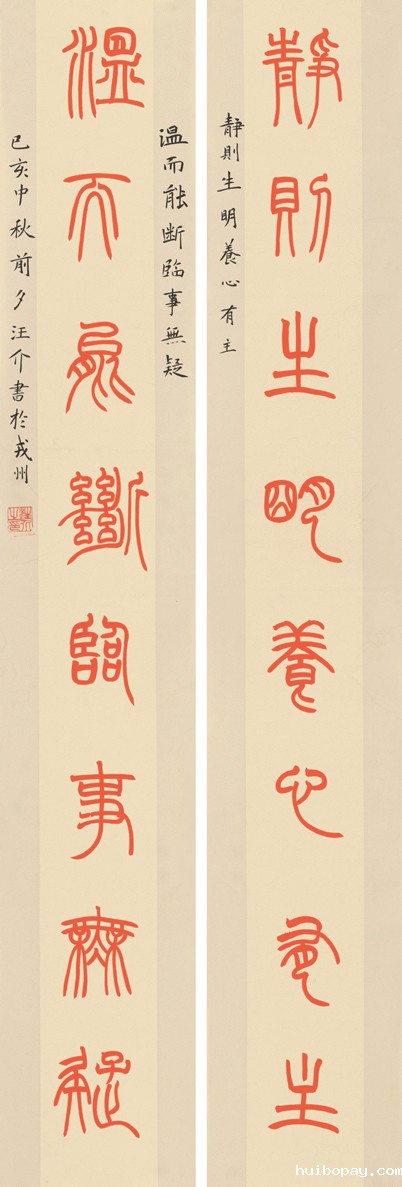 靜則生明養心有主
靜則生明養心有主
溫而能斷臨事無疑
温而能断臨事無疑
己亥中秋前夕汪介書於戎州
huibopay.com